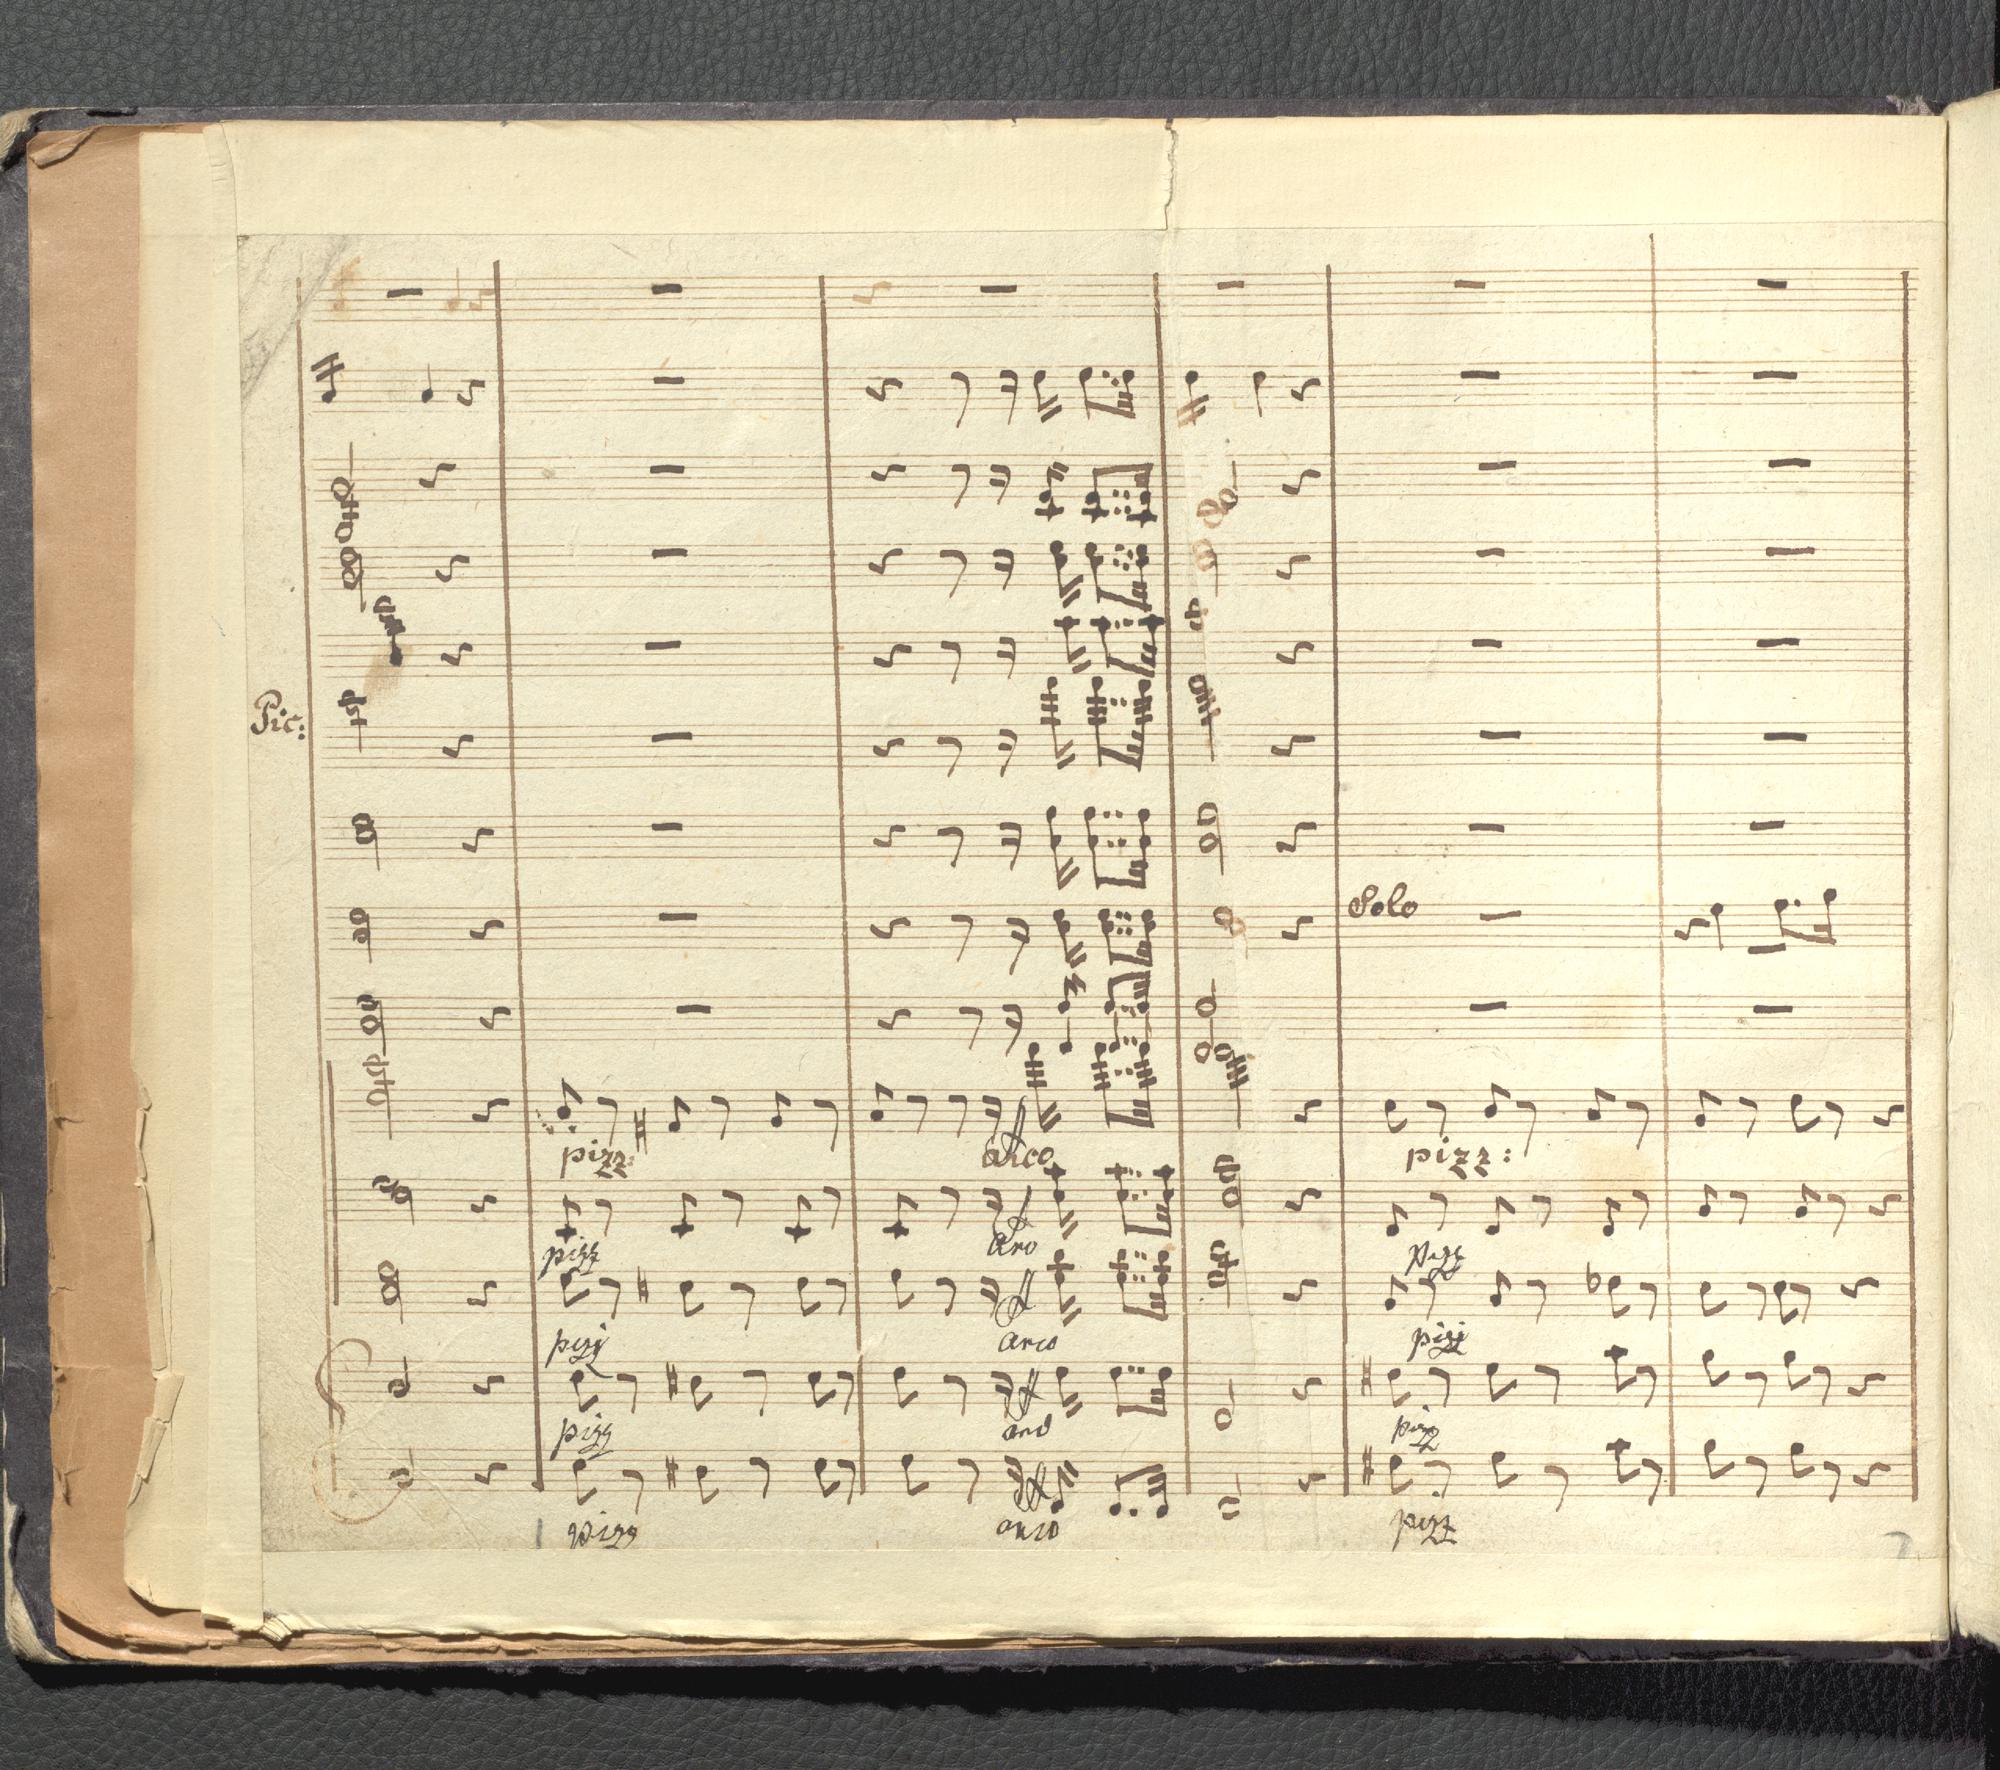 Pic:
Solo
pizz: arco pizz:
pizz aro pizz
pizz arco pizz
pizz arco pizz
pizz arco pizz